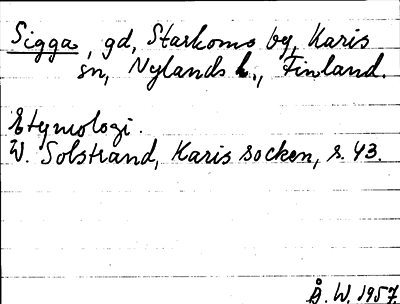 Sigga, gd, Starkoms by, Karis
sn, Nylands l., Finland.
Etymologi.
W. Solstrand, Karis socken, s. 43.
Å. W. 1957.